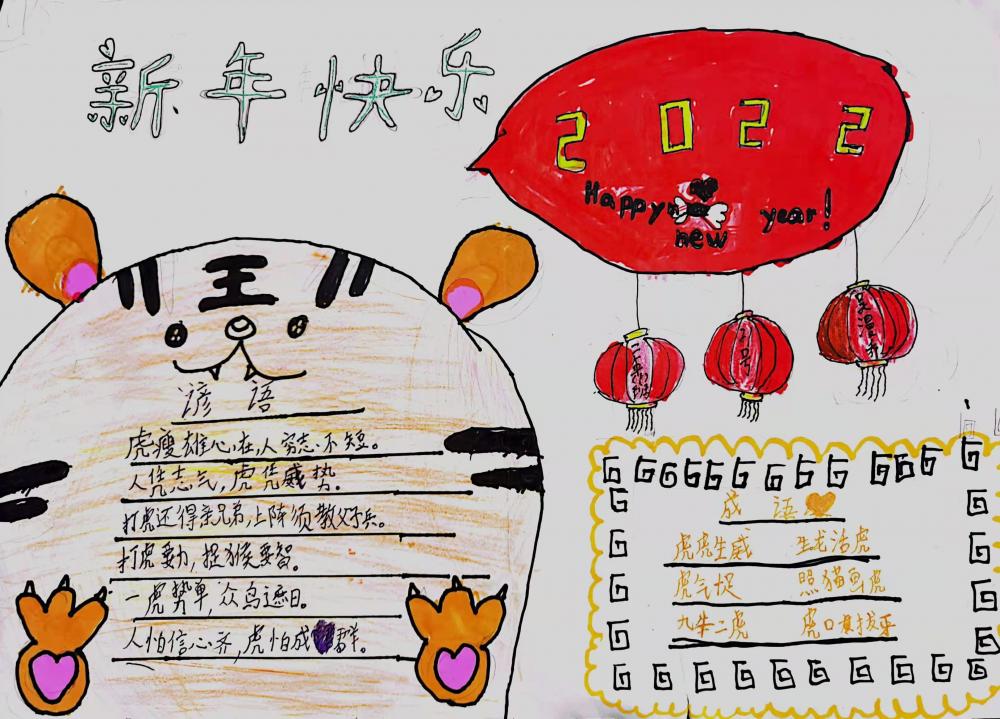 新年快乐
2022
Happy new year!
王
谚语
虎瘦雄心在,人穷志不短。
人凭志气,虎凭威势。
打虎还得亲兄弟,上阵须教父子兵。
打虎要力,捉猴要智。
一虎势单,众鸟遮日。
人怕信心齐,虎怕成群。
成语
虎虎生威 生龙活虎
虎气 照猫画虎
九牛二虎 虎口拔牙